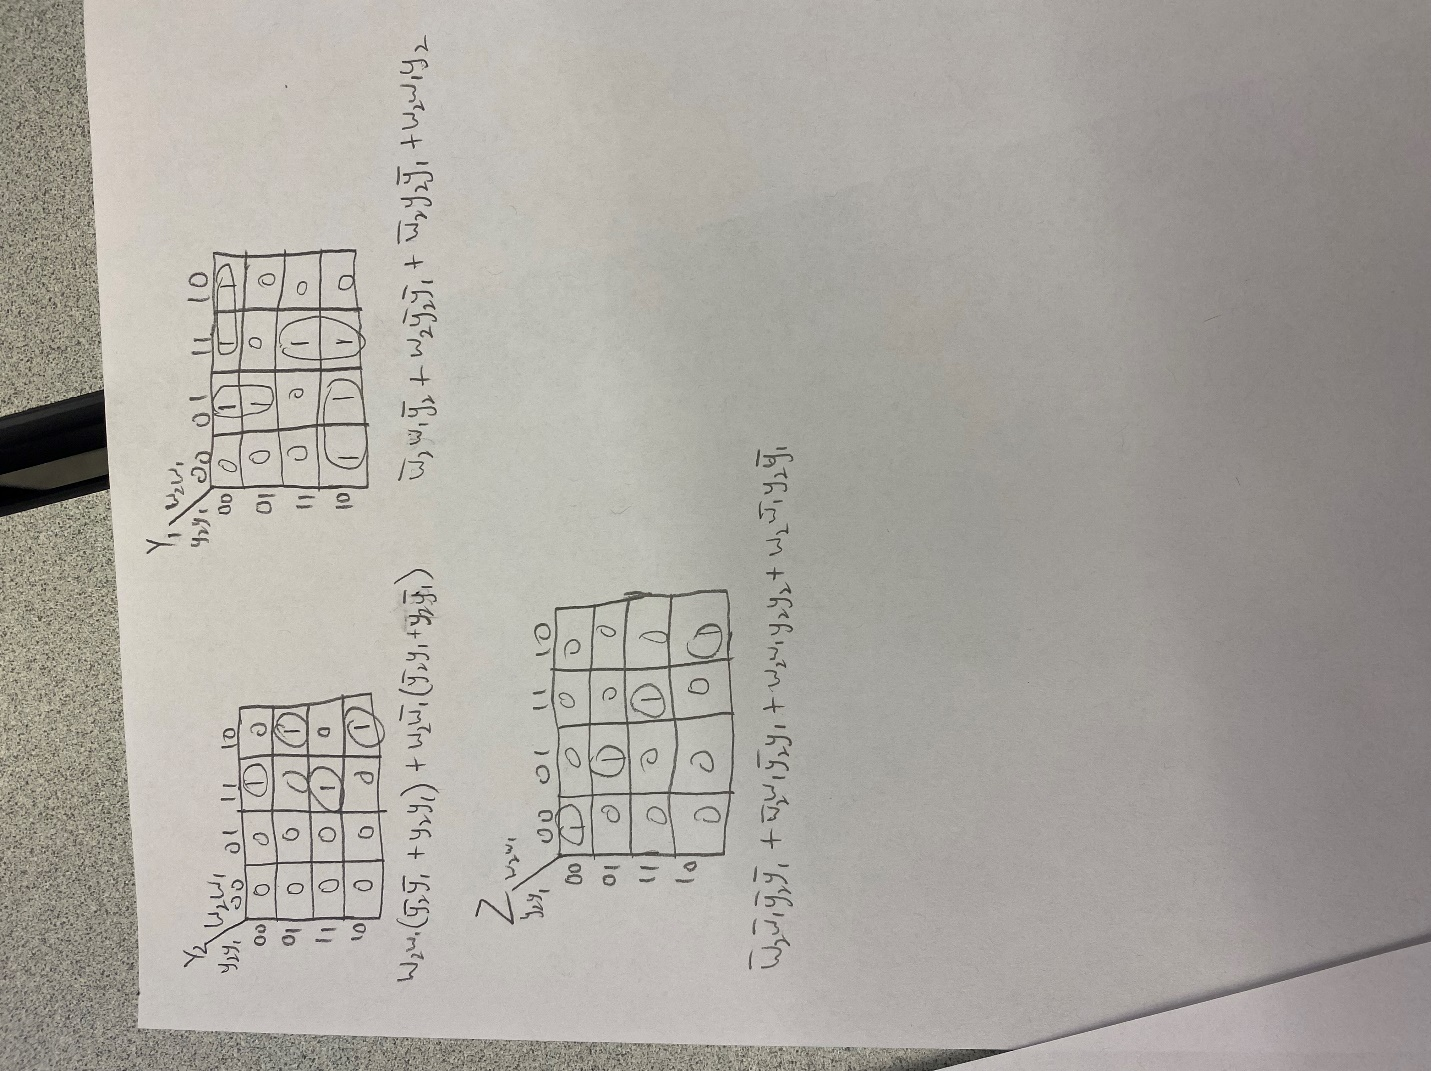 Y₂ w₂w₁
y₂y₁ 00 01 11 10
00 0 0 1 0
01 0 0 0 1
11 0 0 1 0
10 0 0 0 1
w₂w₁(y̅₂y̅₁ + y₂y₁) + w₂w̅₁(y̅₂y₁ + y₂y̅₁)
Y₁ w₂w₁
y₂y₁ 00 01 11 10
00 0 1 1 1
01 0 1 0 0
11 0 0 1 0
10 1 1 1 0
w̅₂w₁y̅₂ + w₂y̅₂y̅₁ + w̅₂y₂y̅₁ + w₂w₁y₂
Z w₂w₁
y₂y₁ 00 01 11 10
00 1 0 0 0
01 0 1 0 0
11 0 0 1 0
10 0 0 0 1
w̅₂w̅₁y̅₂y̅₁ + w̅₂w₁y̅₂y₁ + w₂w₁y₂y₂ + w₂w̅₁y₂y̅₁